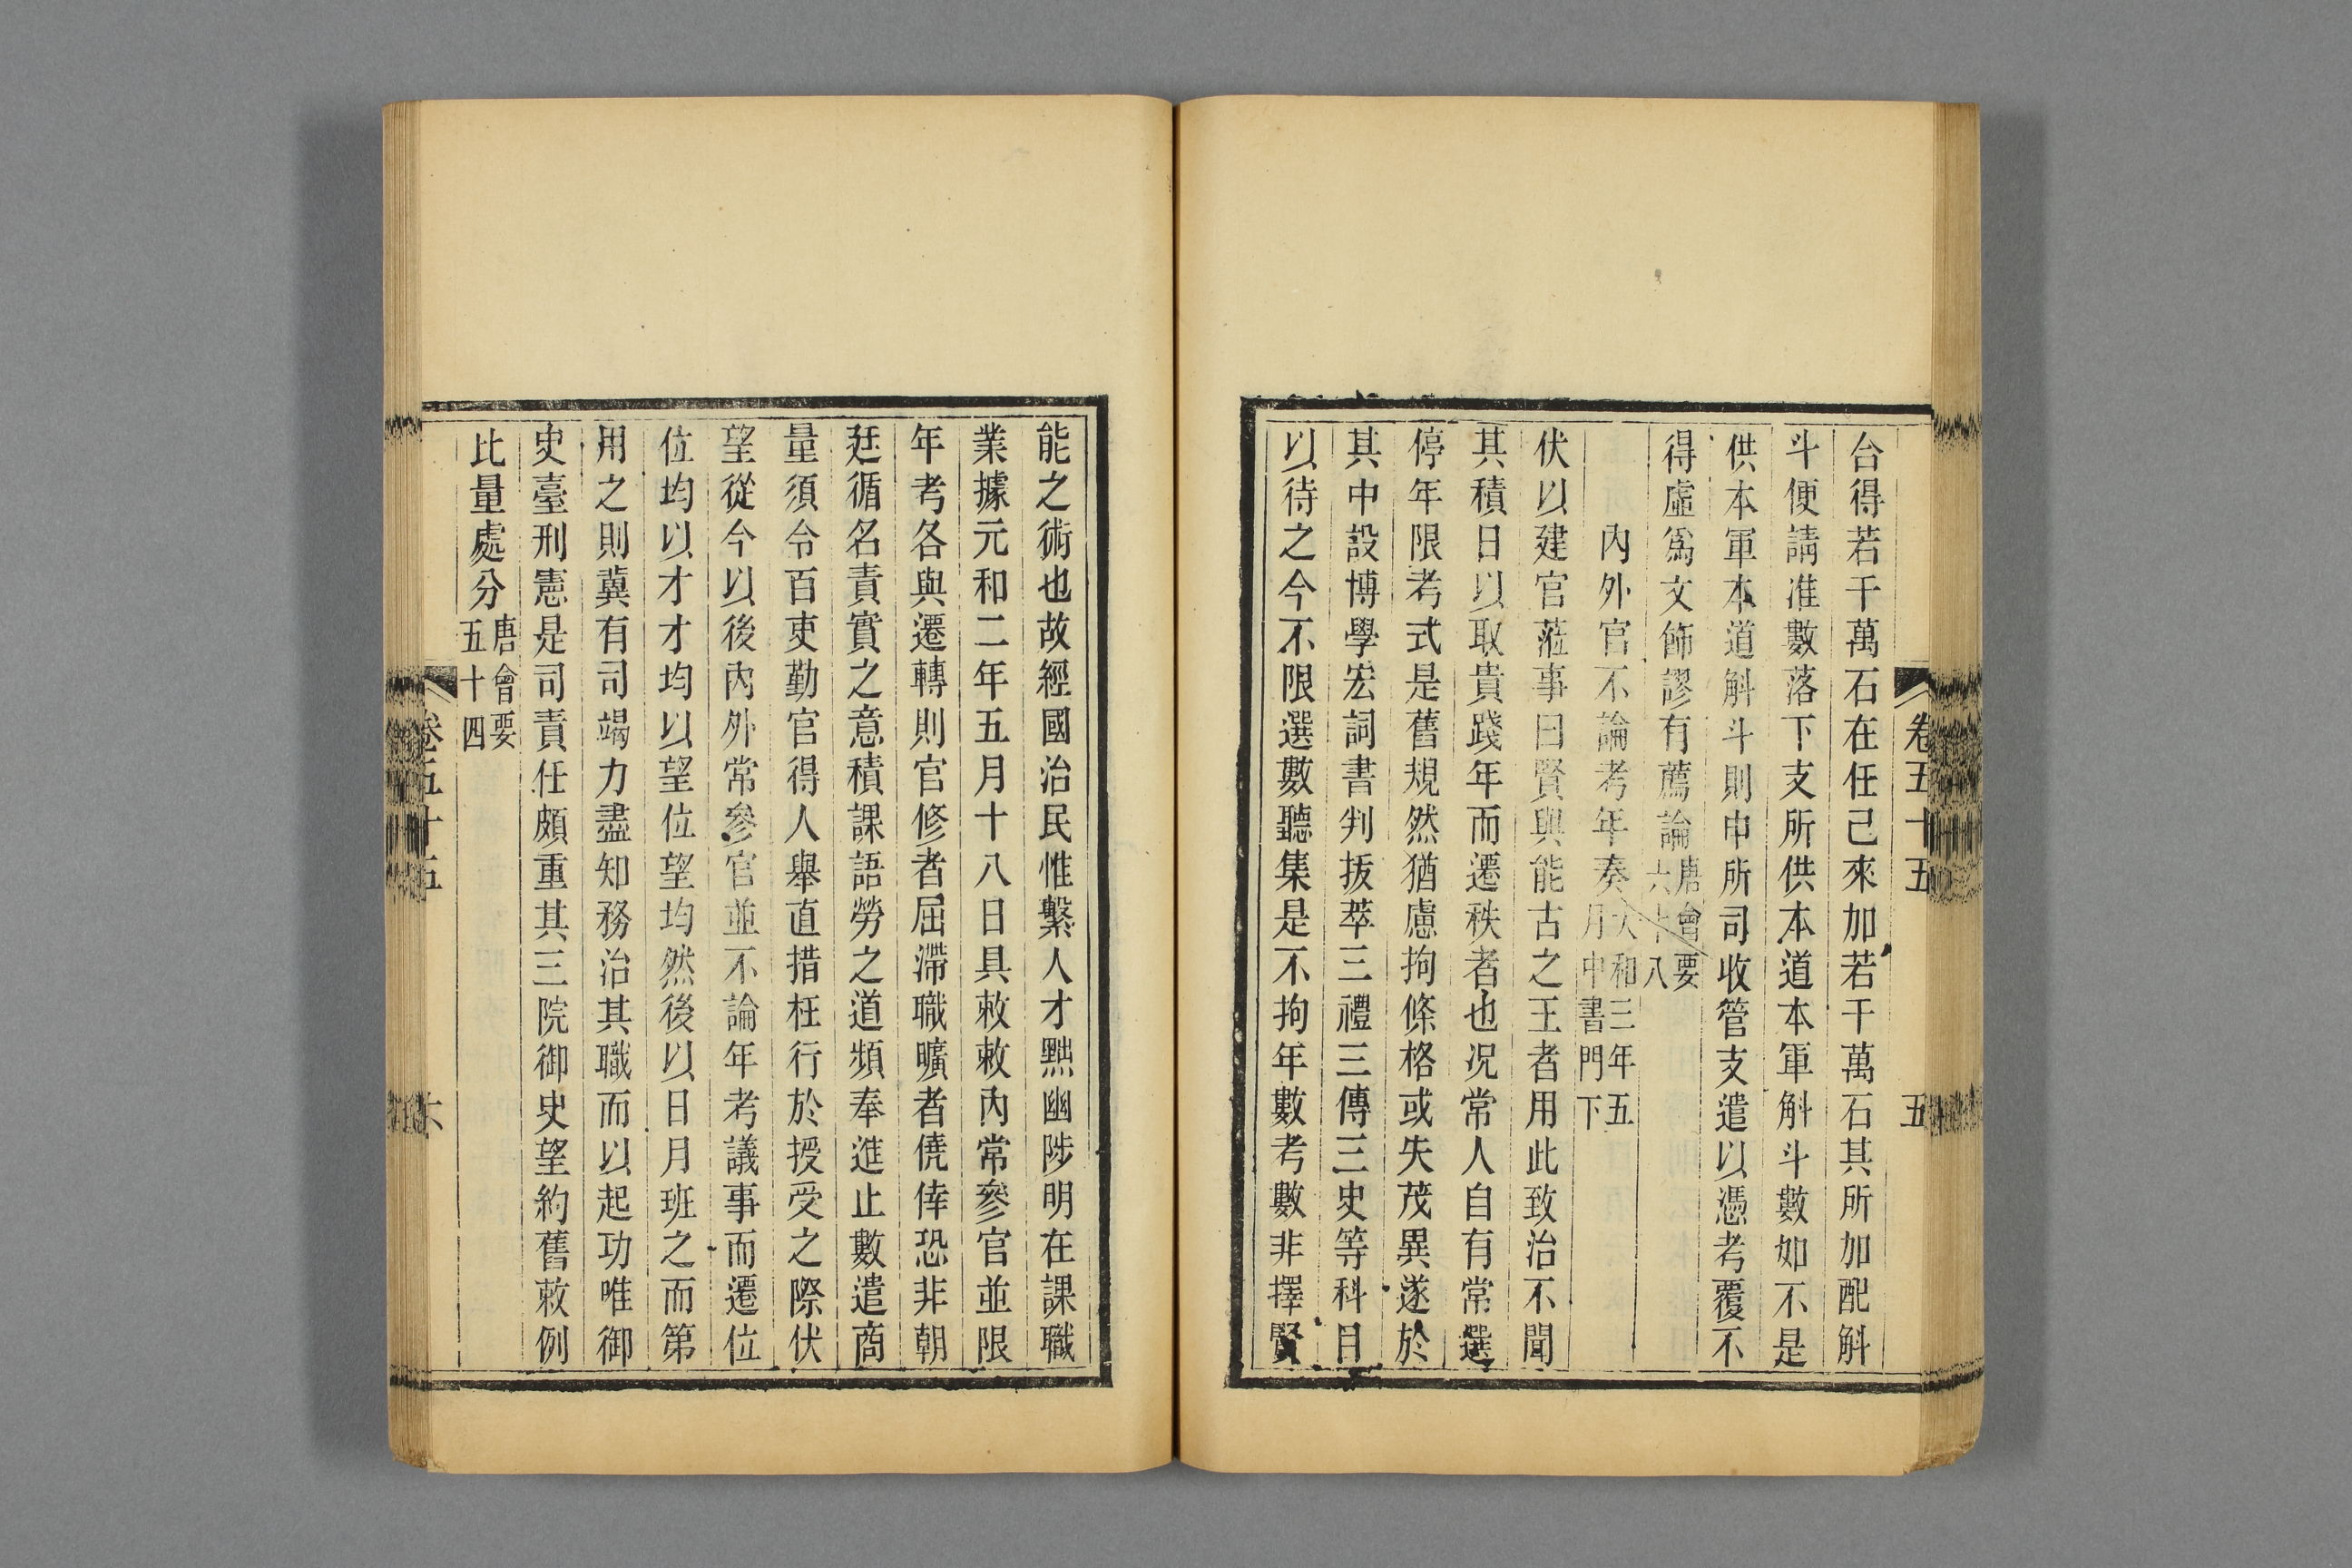 卷五十五
五
合得若干萬石在任己來加若干萬石其所加配斛
斗便請准數落下支所供本道本軍斛斗數如不是
供本軍本道斛斗則申所司收管支遣以憑考覆不
得虛爲文飾謬有薦論唐會要
六十八
內外官不論考年奏大和三年五
月中書門下
伏以建官蒞事曰賢與能古之王者用此致治不聞
其積日以取貴踐年而遷秩者也况常人自有常選
停年限考式是舊規然猶慮拘條格或失茂異遂於
其中設博學宏詞書判拔萃三禮三傳三史等科目
以待之今不限選數聽集是不拘年數考數非擇賢
能之術也故經國治民惟繫人才黜幽陟明在課職
業據元和二年五月十八日具敕敕內常參官並限
年考各與遷轉則官修者屈滯職曠者僥倖恐非朝
廷循名責實之意積課語勞之道頻奉進止數遣商
量須令百吏勤官得人舉直措枉行於授受之際伏
望從今以後內外常參官並不論年考議事而遷位
位均以才才均以望位望均然後以日月班之而第
用之則冀有司竭力盡知務治其職而以起功唯御
史臺刑憲是司責任頗重其三院御史望約舊敕例
比量處分唐會要
五十四
卷五十五
六